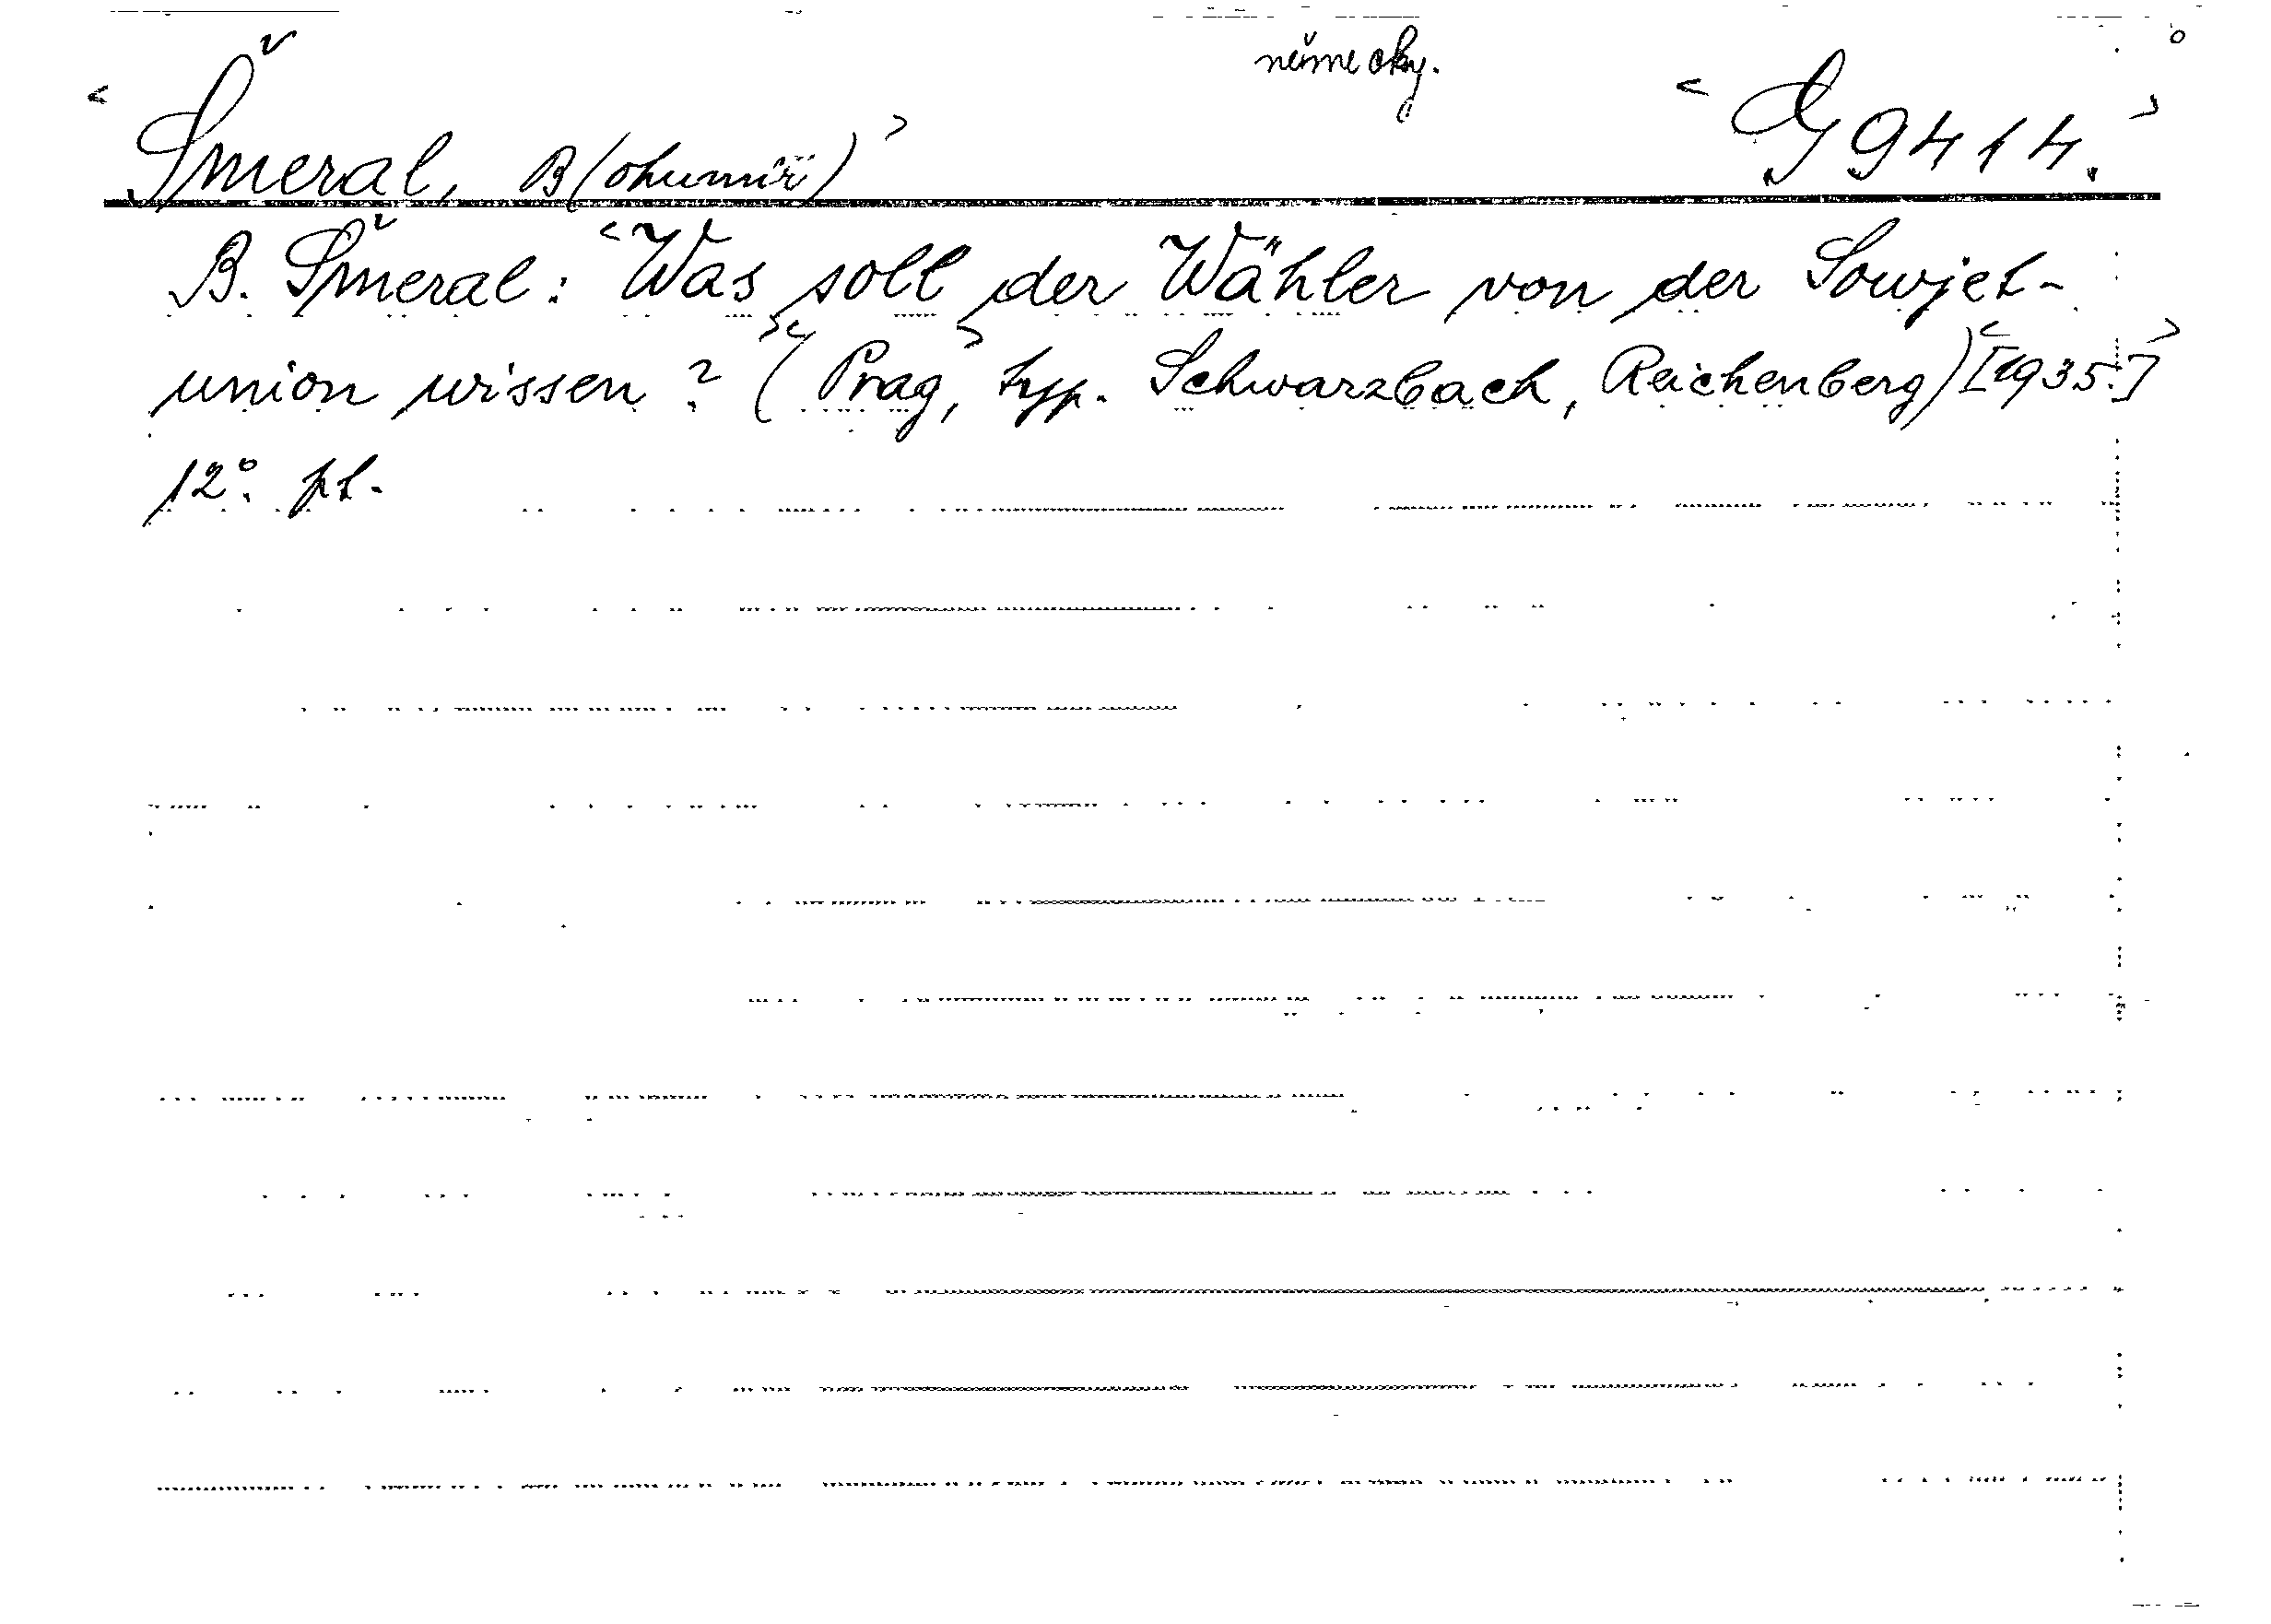 německy.
<Šmeral, B(ohumír)> <G 9414.>
B. Šmeral: <Was soll der Wähler von der Sowjet-
union wissen?> <(Prag,> typ. Schwarzbach, Reichenberg) <[1935.]>
12°. pt.